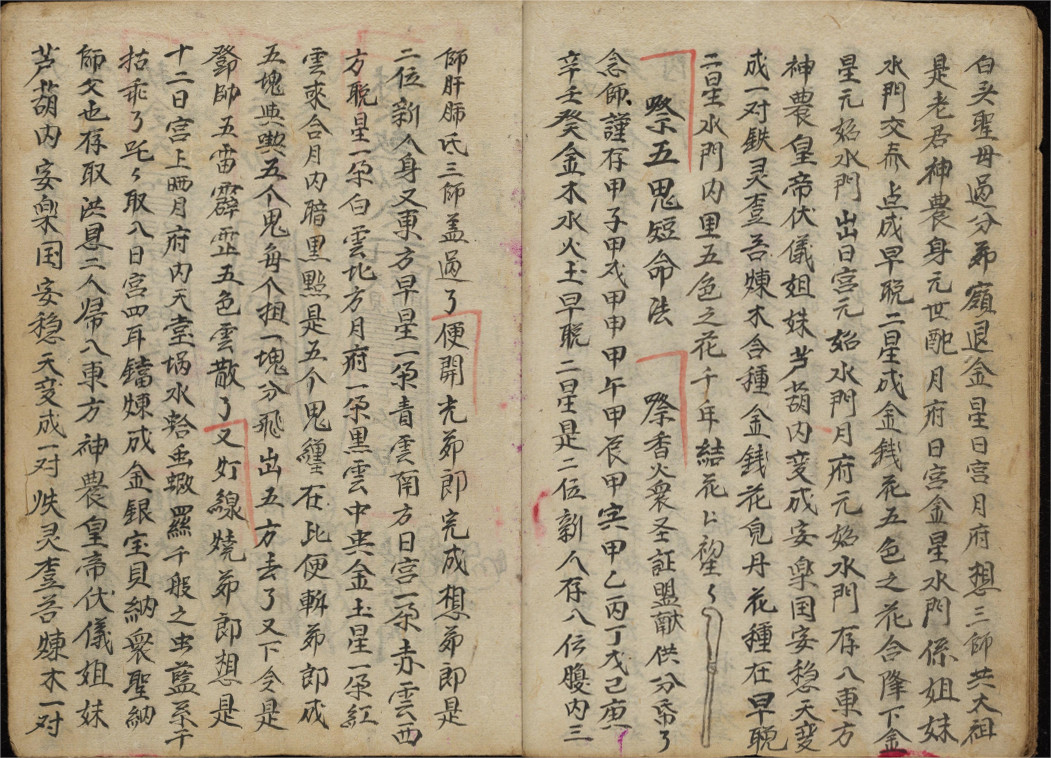 白头聖母過分茅嶺退金星日宮月府想三師共太祖
是老君神農身元世酡月府日宮金星水門係姐妹
水門交泰点成早晩二星成金錢花五色之花合降下金
星元始水門出日宮元始水門月府元始水門存八東方
神農皇帝伏儀姐妹芦葫内变成安楽囯安穏天变
成一对鉄灵壴吾煉木合種金錢花見丹花種在早晩
二星水門内里五色之花千年結花上初望〻
祭五鬼短命法 祭香火衆圣証盟献供分吊了
念師謹存甲子甲戌甲申甲午甲辰甲寅甲乙丙丁戊己庚
辛壬癸金木水火土早晩二星是二位新人存八位腹内三
師肝肺氏三師盖過了便開光茆郎完成想茆郎是
二位新人身又東方早星一朶青雲南方日宮一朶赤雲西
方晩星一朶白雲北方月府一朶黒雲中央金土星一朶紅
雲來合月内暗黒點是五个鬼纏在比便斬茆郎成
五塊典與五个鬼每个担一塊分飛出五方去了又下令是
鄧帥五雷霹雳五色雲散了又灯線燒茆郎想是
十二日宮上晒月府内天堂堝水蛤虫蝂羅千般之虫藍至干
枯乖了吒〻取八日宮四耳鐺煉成金銀宝貝納衆聖納
師父也存取洪恩二人帰八東方神農皇帝伏儀姐妹
芦葫内安楽囯安穏天变成一对鉄灵壴吾煉木一对